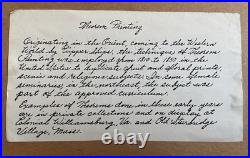 Theorem Painting
Originating in the Orient, coming to the Western
World by Clipper Ships, the technique of Theorem
Painting was employed from 1810 to 1850 in the
United States to duplicate fruit and floral prints,
scenic and religious subjects. In some female
seminaries in the northeast, the subject was
part of the approved curriculum.
Examples of Theorems done in those early years
are in private collections and on display at
Colonial Williamsburg, Va. and Old Sturbridge
Village, Mass.